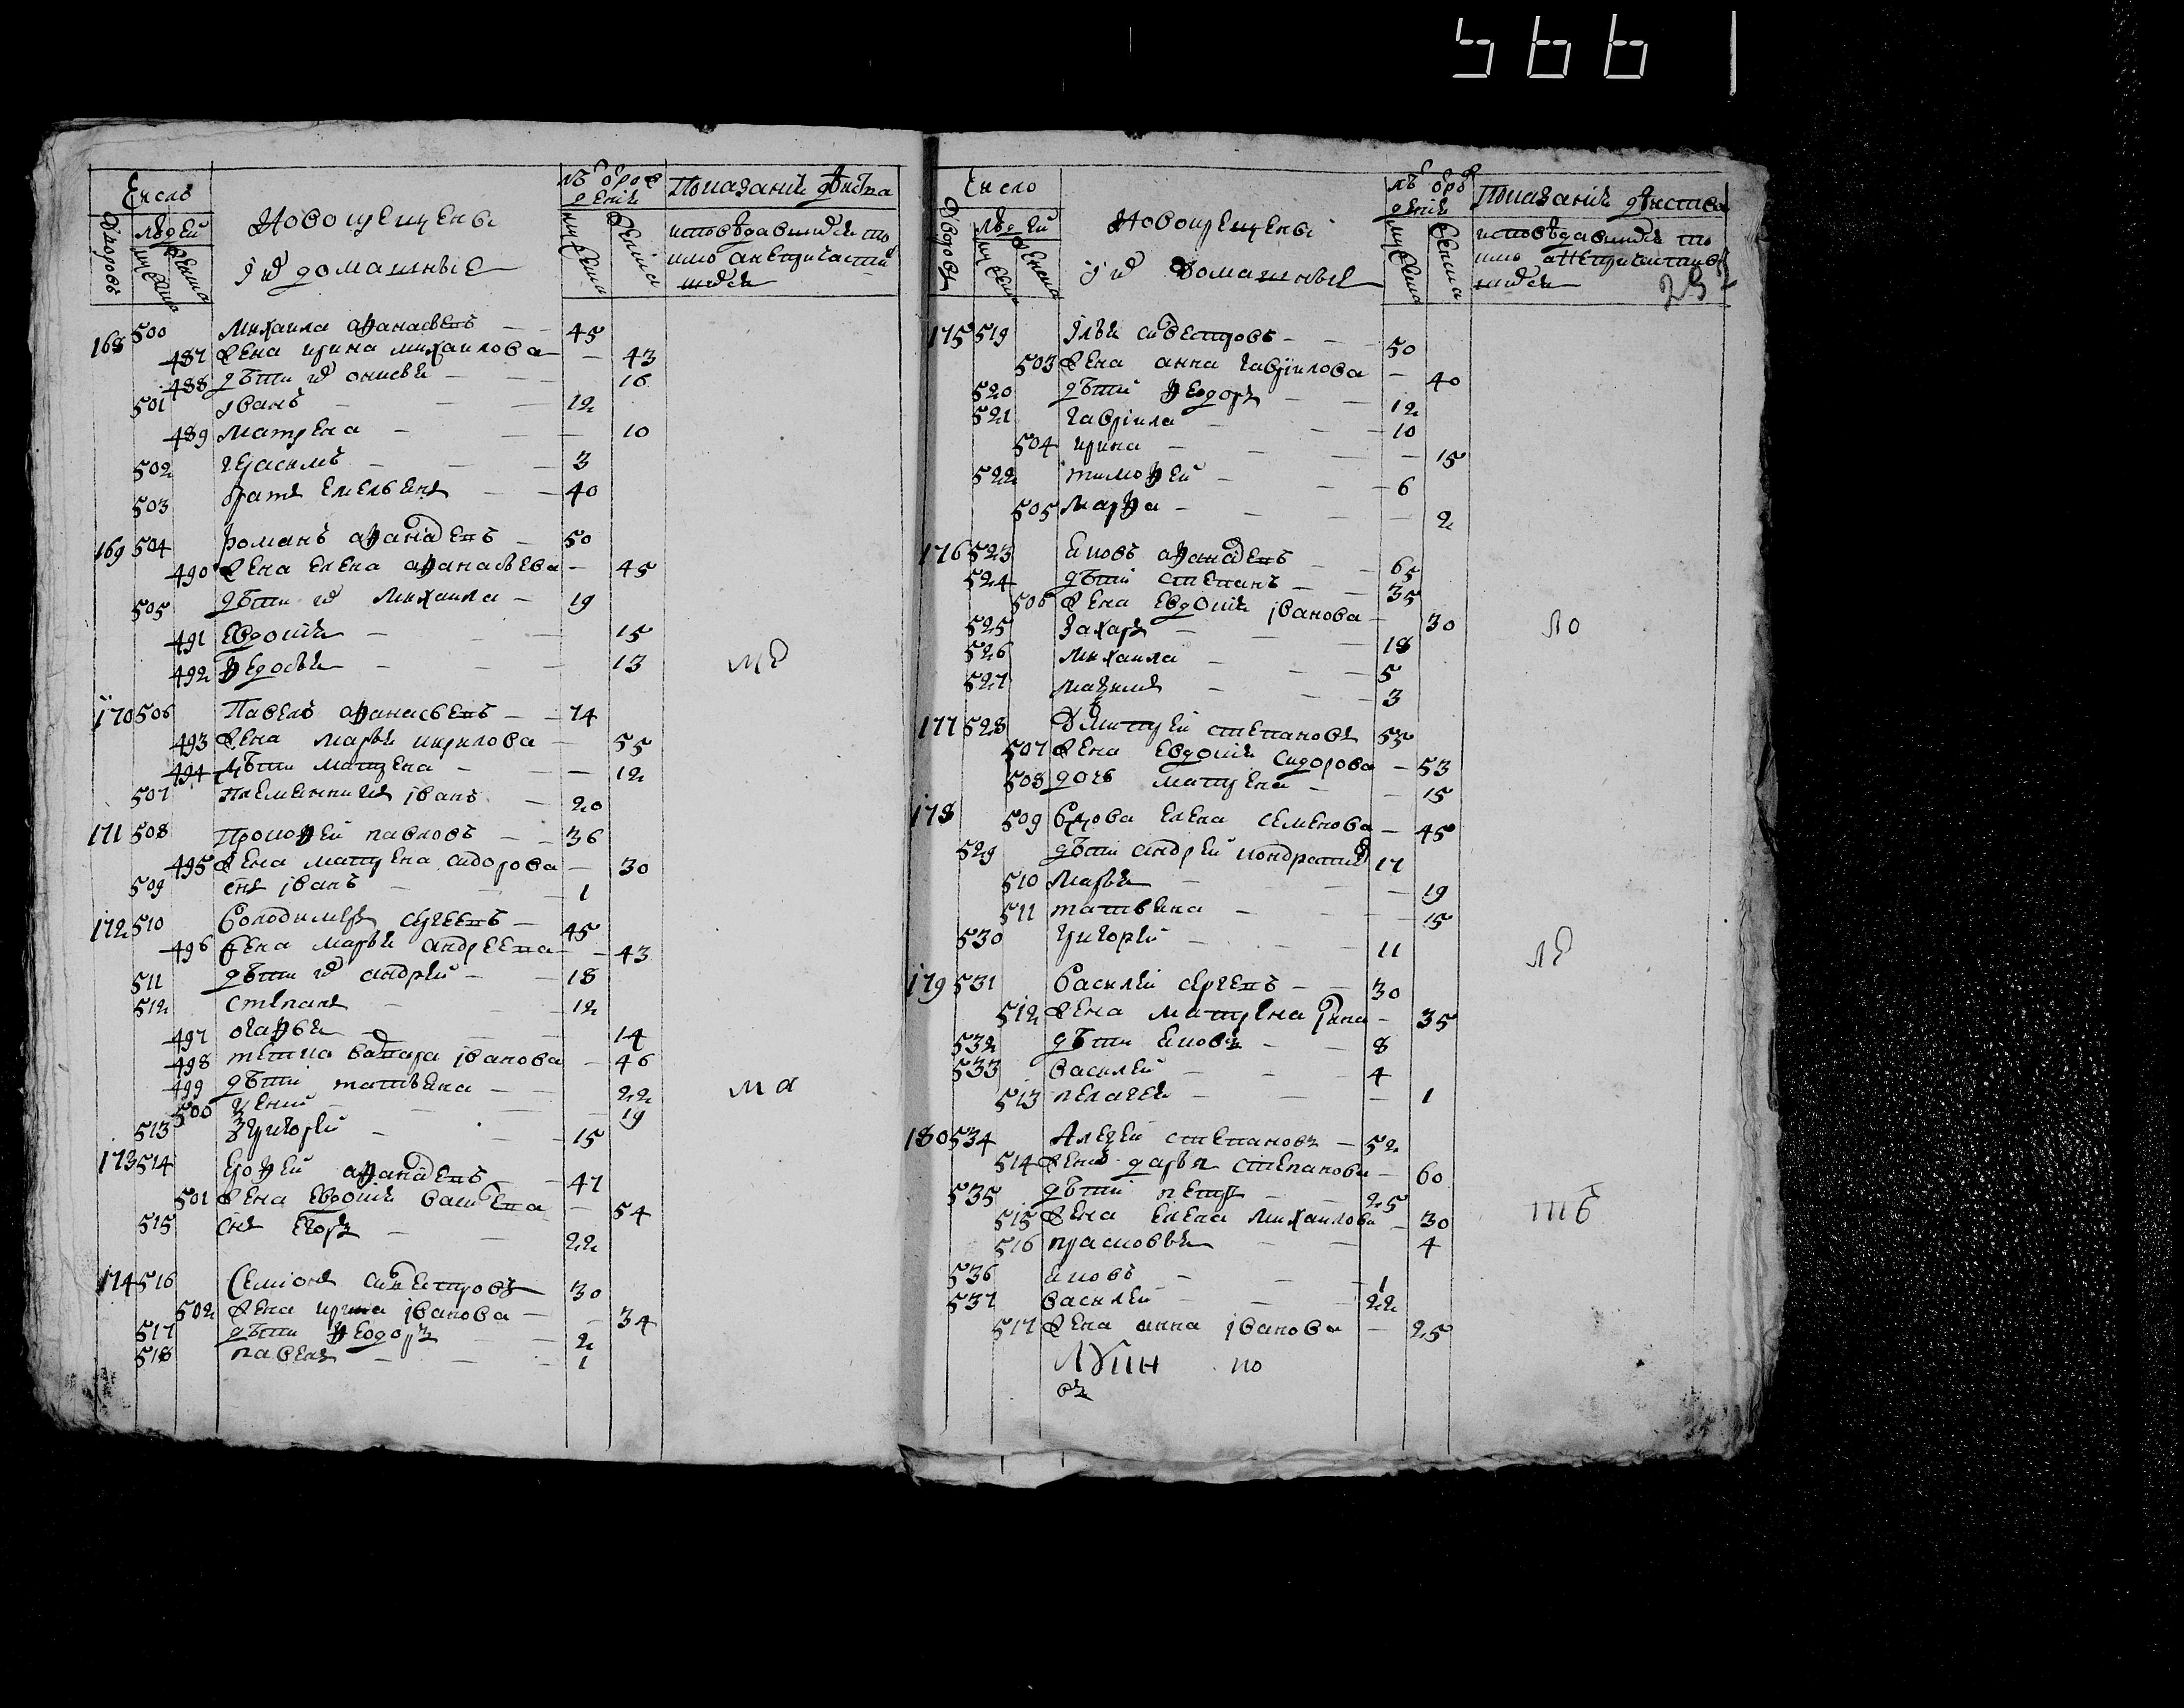 5661
Число
Дворовъ
людей
мужеска
женска
Новокрещены
і их домашные
лѣтъ рождения
мужеска
женска
Показание действа
исповѣдавшихся то
кмо а не причасти
вшихся
168 500 Михаила афанасьевъ 45
487 жена ирина михаилова 43
488 дѣти их онисья 16
501 іванъ 12
489 матрена 10
502 герасимъ 3
503 братъ емельянъ 40
169 504 романъ афанасьевъ 50
490 жена елена афанасьева 45
505 дѣти их михаила 19
491 евдокия 15
492 федосья 13
170 506 Павелъ афанасьевъ 74
493 жена марья кирилова 55
494 дѣти матрена 12
507 племянникъ іванъ 20
171 508 Прокофей павловъ 36
495 жена матрена сидорова 30
509 снъ іванъ 1
172 510 Володимеръ сергеевъ 45
496 жена марья андреева 43
511 дѣти их андрей 18
512 степанъ 12
497 агафья 14
498 тетка варвара іванова 46
499 дѣти татьяна 22
500 19
513 григорей 15
173 514 Ерофей афанасьевъ 47
501 жена евдокия васильева 54
515 снъ егоръ 22
174 516 Семіонъ силвестровъ 30
502 жена ирина іванова 34
517 дѣти федоръ 2
518 павелъ 1
Число
Дворовъ
людей
мужеска
женска
Новокрещены
і их домашныя
лѣтъ рождения
мужеска
женска
Показание действа
исповѣдавшихся то
кмо а не причастив
шихся
175 519 Ілья силвестровъ 50
503 жена анна гаврилова 40
520 дѣти федоръ 12
521 гаврила 10
504 ирина 15
522 тимофей 6
505 марфа 2
176 523 яковъ афанасьевъ 65
524 дѣти степанъ 35
506 жена евдокия іванова 30
525 захаръ 18
526 михаила 5
527 максимъ 3
177 528 Дмитрей степановъ 55
507 жена евдокия сидорова 53
508 дочь матрена 15
178 509 вдова елена семенова 45
529 дѣти андрей кондратьев 17
510 марья 19
511 татьяна 15
530 григорей 11
179 531 Василей сергеевъ 30
512 жена матрена іванова 35
532 дѣти яковъ 8
533 василей 4
513 пелагея 1
180 534 Алексей степановъ 52
514 жена дарья степанова 60
535 дѣти петръ 25
515 жена елена михаилова 30
516 прасковья 4
536 яковъ 1
537 василей 22
517 жена анна іванова 25